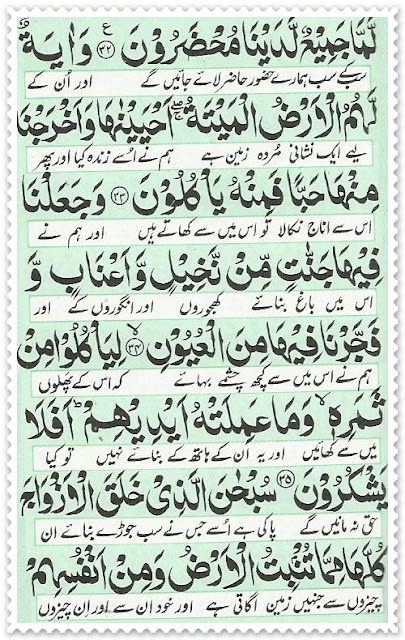 لَّمَّا جَمِيْعٌ لَّدَيْنَا مُحْضَرُوْنَ ﴿٣٢﴾ ع وَاٰيَةٌ
سب کے سب ہمارے حضور حاضر لائے جائیں گے اور اُن کے
لَّهُمُ الْاَرْضُ الْمَيْتَةُ ۖۚ اَحْيَيْنٰهَا وَاَخْرَجْنَا
لیے ایک نشانی مُردہ زمین ہے ہم نے اُسے زندہ کیا اور پھر
مِنْهَا حَبًّا فَمِنْهُ يَاْكُلُوْنَ ﴿٣٣﴾ وَجَعَلْنَا
اس سے اناج نکالا تو اس میں سے کھاتے ہیں اور ہم نے
فِيْهَا جَنّٰتٍ مِّنْ نَّخِيْلٍ وَّاَعْنَابٍ وَّ
اس میں باغ بنائے کھجوروں اور انگوروں کے اور
فَجَّرْنَا فِيْهَا مِنَ الْعُيُوْنِ ﴿٣٤﴾ۙ لِيَاْكُلُوْا مِنْ
ہم نے اس میں سے کچھ چشمے بہائے کہ اس کے پھلوں
ثَمَرِهٖ ۙ وَمَا عَمِلَتْهُ اَيْدِيْهِمْ ؕ اَفَلَا
میں سے کھائیں اور یہ ان کے ہاتھ کے بنائے نہیں تو کیا
يَشْكُرُوْنَ ﴿٣٥﴾ سُبْحٰنَ الَّذِيْ خَلَقَ الْاَزْوَاجَ
حق نہ مانیں گے پاکی ہے اُسے جس نے سب جوڑے بنائے ان
كُلَّهَا مِمَّا تُنْۢبِتُ الْاَرْضُ وَمِنْ اَنْفُسِهِمْ
چیزوں سے جنہیں زمین اگاتی ہے اور خود ان سے اور اِن چیزوں